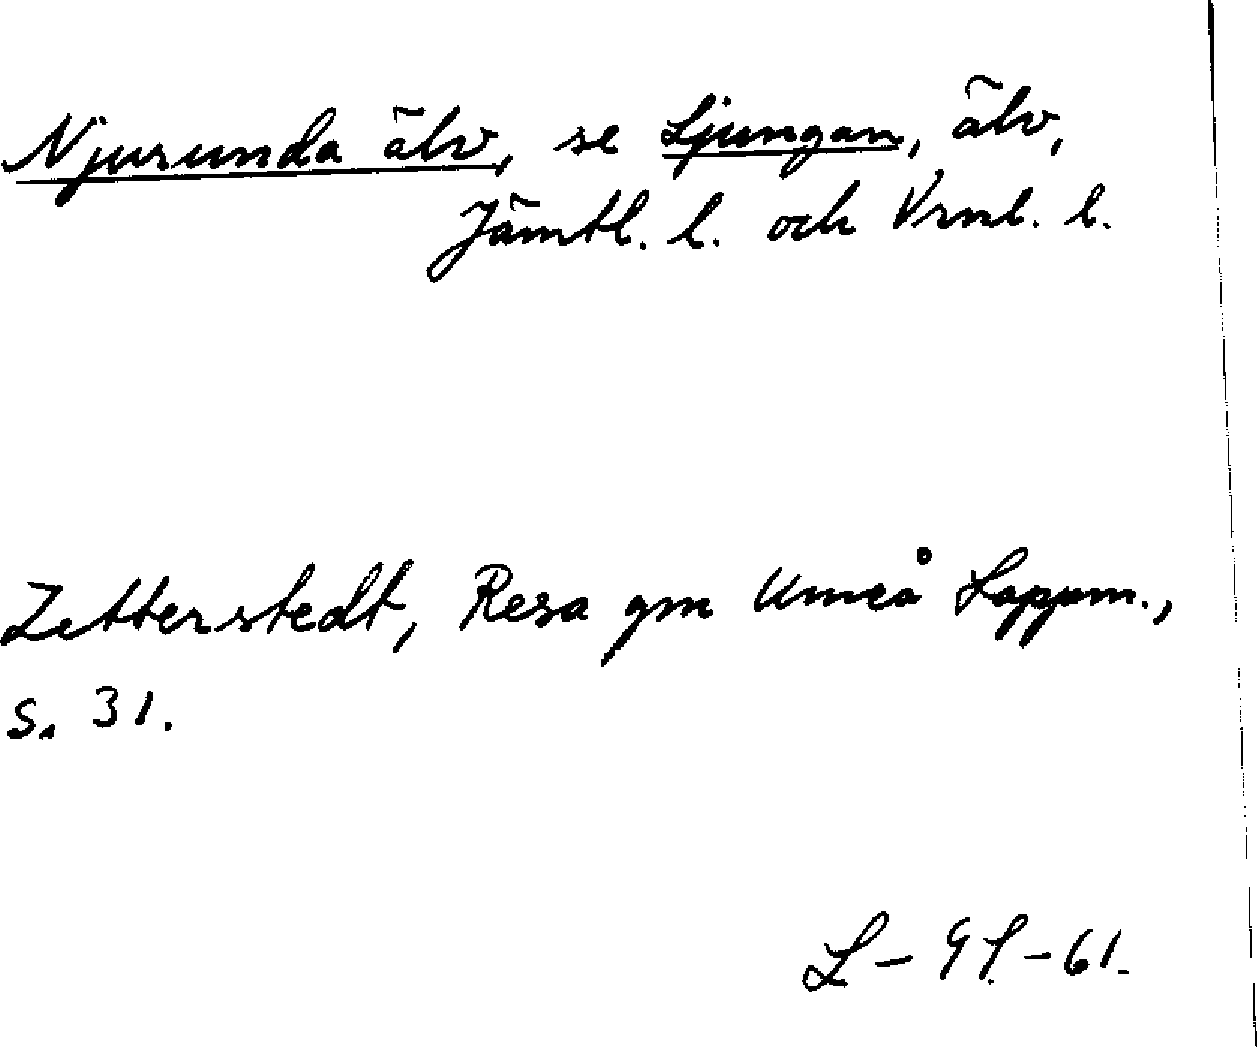 Njurunda älv, se Ljungan, älv,
Jämtl. l. och Vrnl. l.
Zetterstedt, Resa gm Umeå Lappm.,
s. 31.